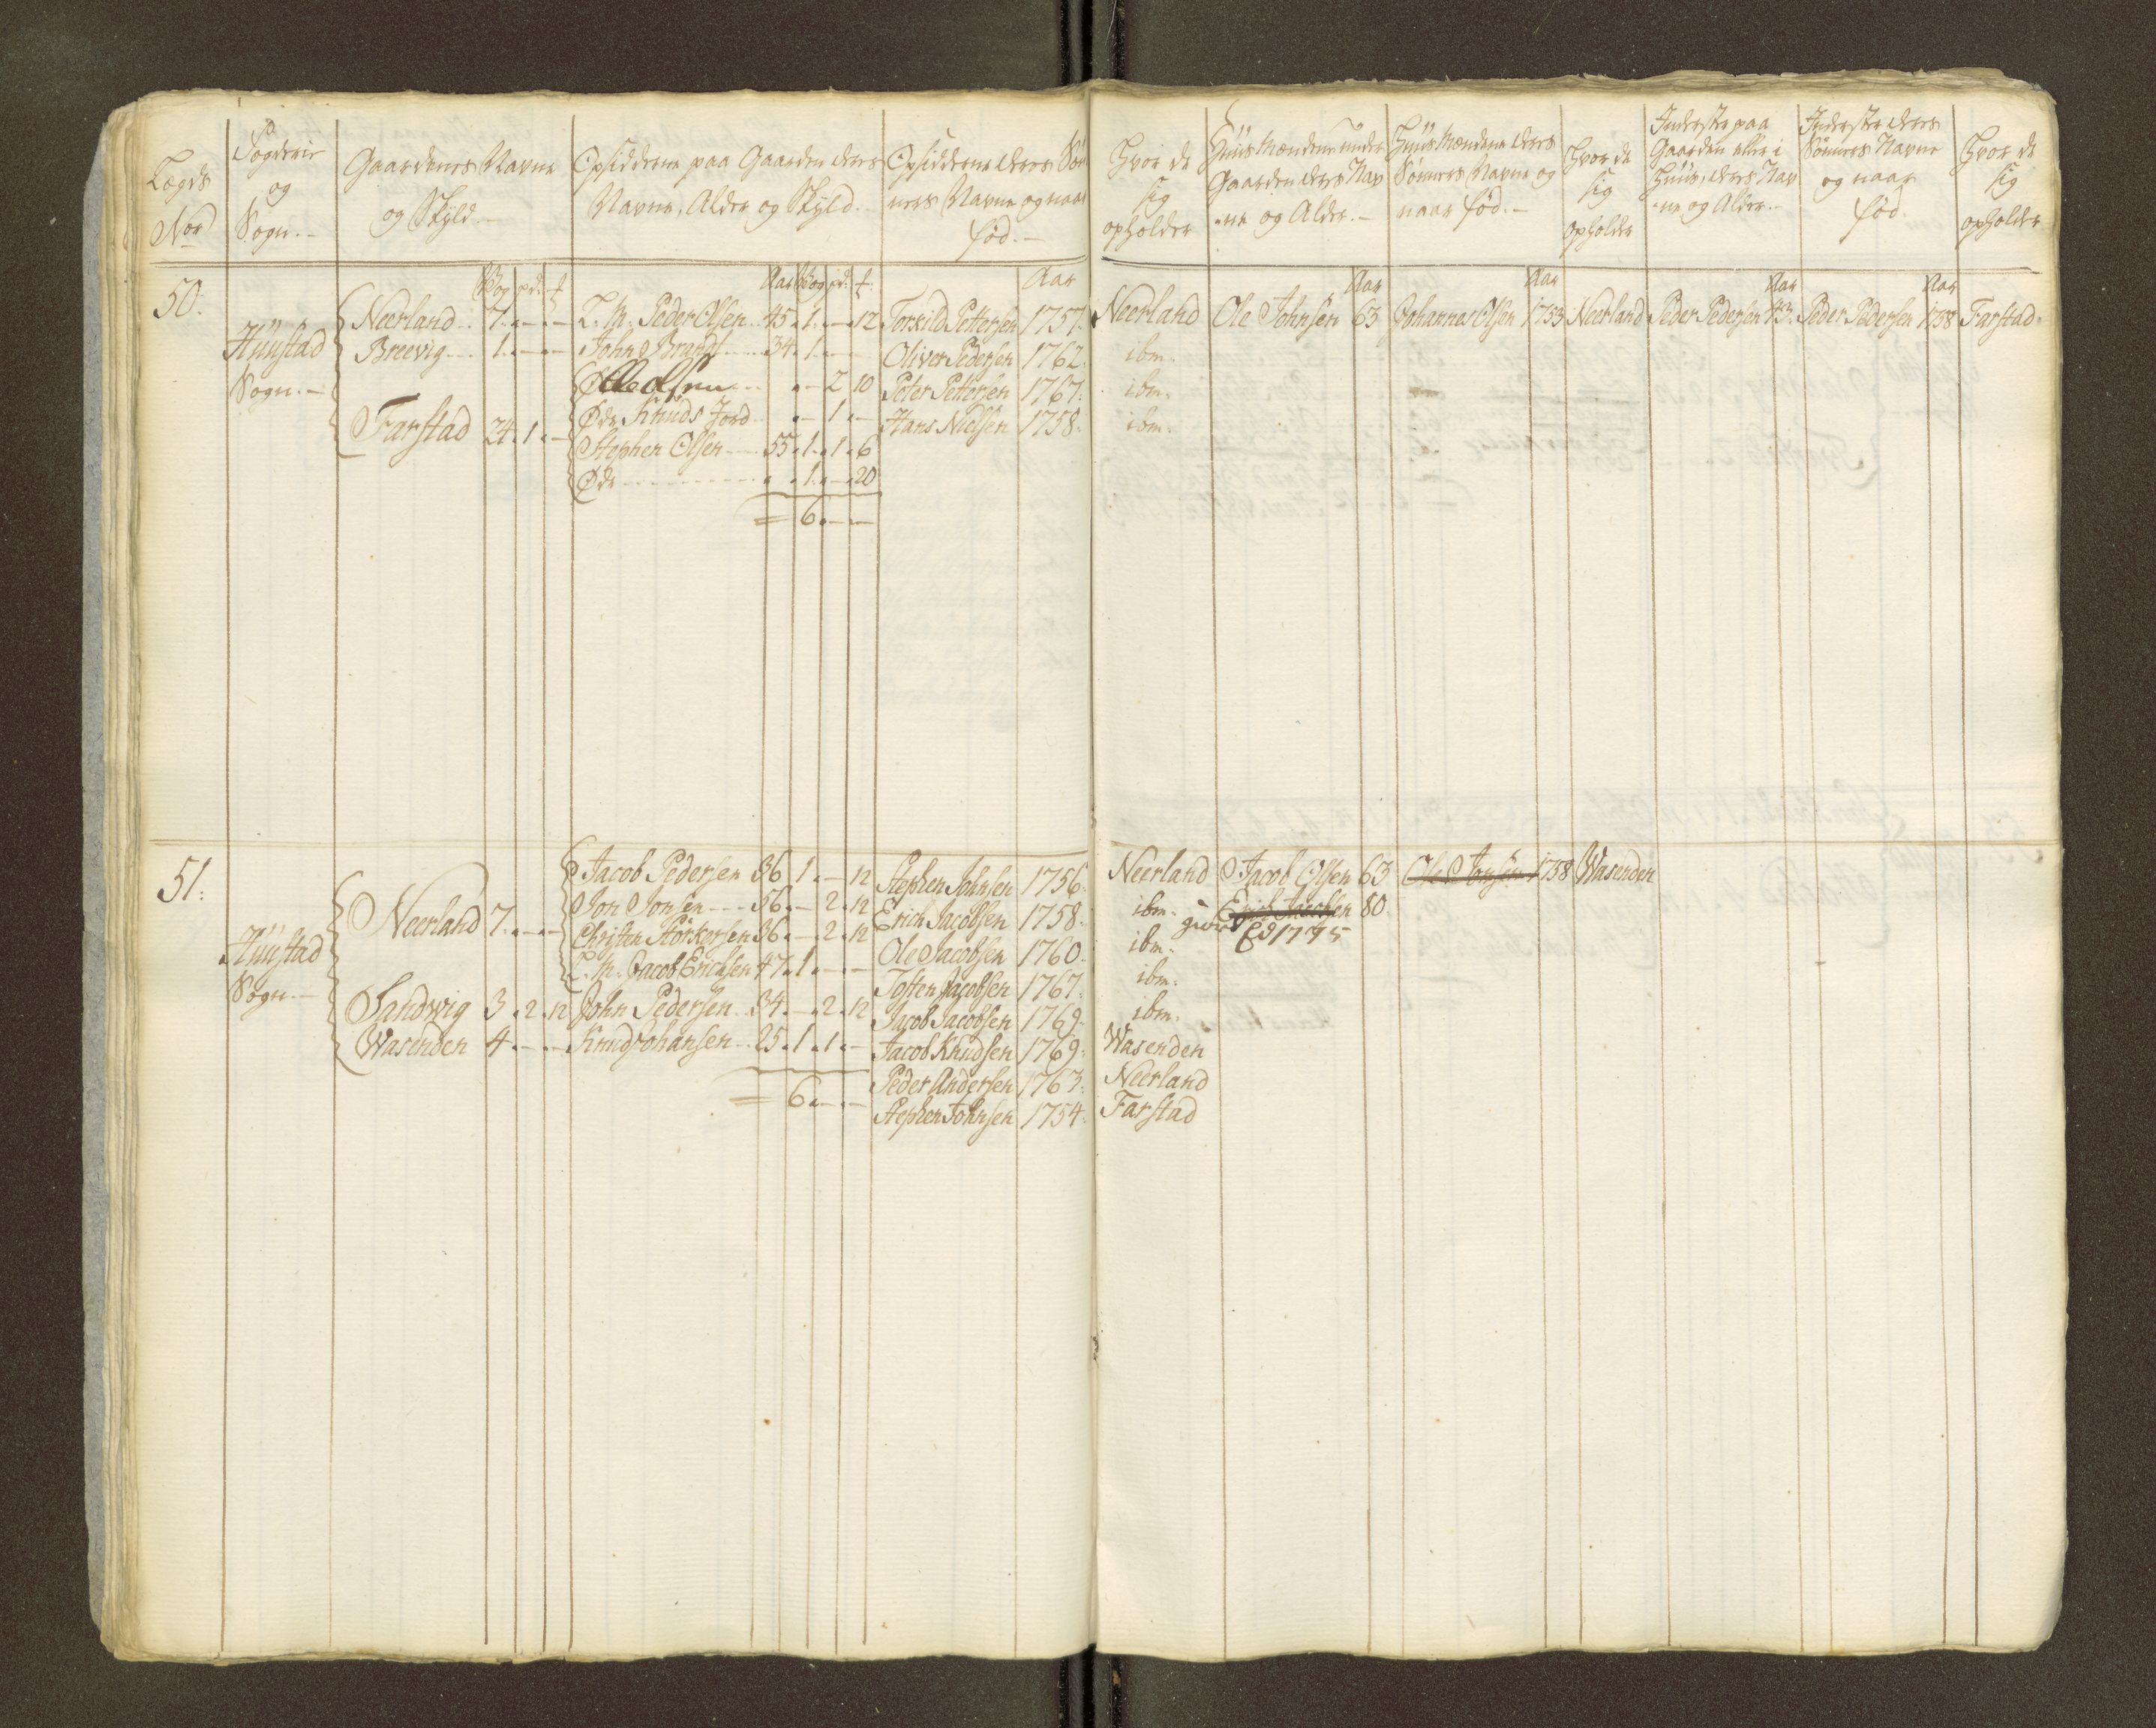 Lægds
No
Fogderie
og
Sogn.-
Gaardenes Navne
og Skyld.-
Opsiddere paa Gaarden deres
Navne, Alder og Skyld.-
Opsiddernes deres Søn
ners Navne og naar
fød.-
Hvor de
sig
opholder
Huusmændene under
Gaarden deres Nav
-ne og Alder.-
Huusmændene deres
Sønners Navne og
naar fød.-
Hvor de
sig
opholder
Inderste paa
Gaarden eller i
Huus, deres Nav
-ne og Alder.-
Inderste deres
Sønners Navne
og naar
fød.
Hvor de
sig
opholder
50.
Hüustad
Sogn.-
Wog pd. £
Neerland 7. - -
Breevig 1. - -
Farstad 24. 1. -
Aar Wog pd. £
L. M. Peder Olsen 45. 1. - 12
John Brandt 34. 1. - -
Olle Olsen - 2 10
Øde Knuds Jord - 1. -
Stephen Olsen 55. 1. 1. 6
Øde 1. - 20
= 6. - -
Aar
Torkild Pettersen 1757.
Oliver Pedersen 1762.
Peter Pettersen 1767.
Hans Nielsen 1758.
Neerland
ibm.
ibm.
ibm.
Aar
Ole Johnsen 63
Aar
Johannes Olsen 1753 Neerland
Aar
Peder Pedersen 43.
Aar
Peder Pedersen 1758 Farstad.
51.
Hüustad
Sogn.-
Neerland 7. - -
Sandvig 3. 2. 12
Wasenden 4. - -
Jacob Pedersen 36 1. - 12
Jon Jonsen 56. - 2. 12
Christen Störkersen 36. - 2. 12
L. M. Jacob Erichsen 47. 1. - -
John Pedersen 34. - 2. 12
Knud Johansen 25. 1. 1. -
= 6. - -
Stephen Johnsen 1756.
Erich Jacobsen 1758.
Ole Jacobsen 1760.
Tosten Jacobsen 1767.
Jacob Jacobsen 1769.
Jacob Knudsen 1769.
Peder Andersen 1763.
Stephen Johnsen 1754.
Neerland
ibm.
ibm.
ibm.
ibm.
Wasenden
Neerland
Farstad
Jacob Olsen 63
Erich Jacobsen 80.
1775
Ole Jonsen 1758 Wasenden